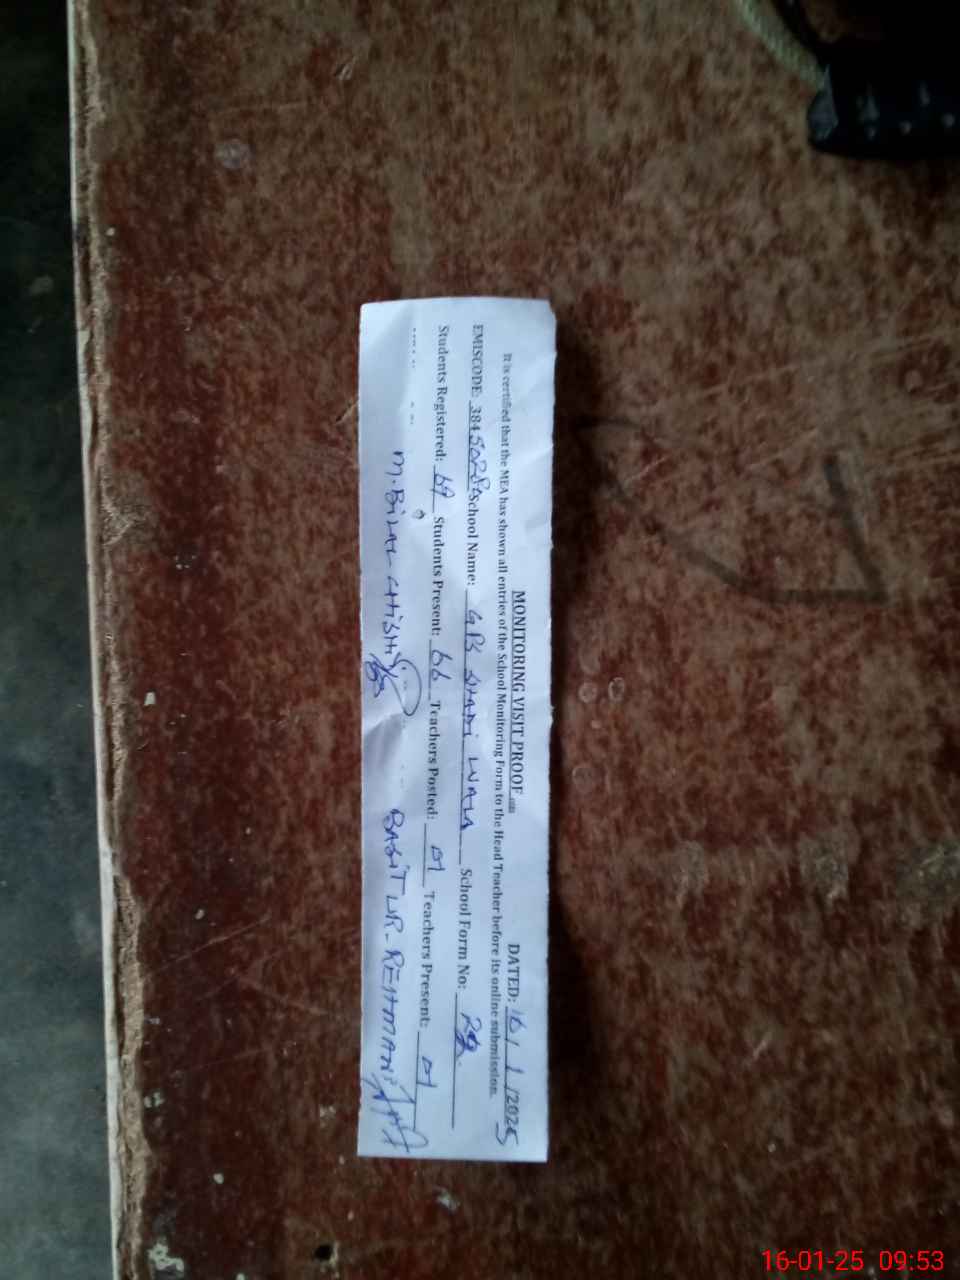 MONITORING VISIT PROOF
DATED: 16/1/2025
It is certified that the MEA has shown all entries of the School Monitoring Form to the Head Teacher before its online submission.
EMISCODE: 384 School Name: GPS SHADI WALA School Form No:
Students Registered: 69 Students Present: 66 Teachers Posted: 01 Teachers Present: 01
M. BILAL CHISHTI BASIT UR-REHMAN
16-01-25 09:53